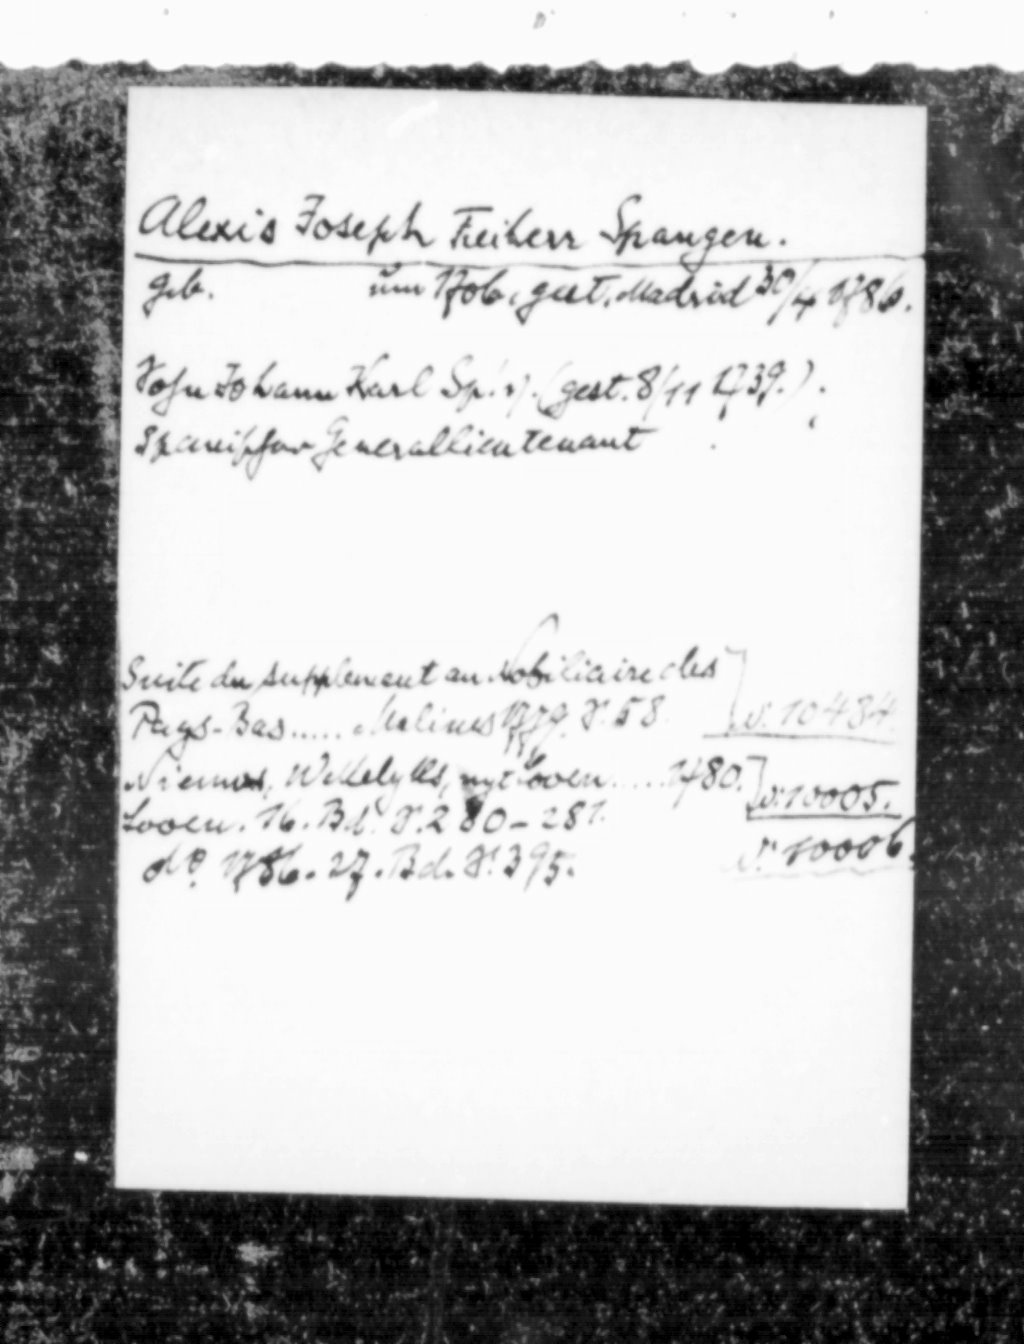 Alexis Joseph Freiherr Spangen.
geb. um 1706, gest. Madrid 30/4 1786.
Sohn Johann Karl Sp. (gest. 8/11 1739.).
Spanischer Generallieutenant
Suite du supplement au Nobiliaire des
Pays-Bas..... Malines 1779. S. 58. N: 10484.
Niemos, Wekkelyks, uyt Loven.....1780.
Loven. 16. Bd. S. 280-281. N: 10005.
do. 1786. 27. Bd. S. 395. N: 10006.